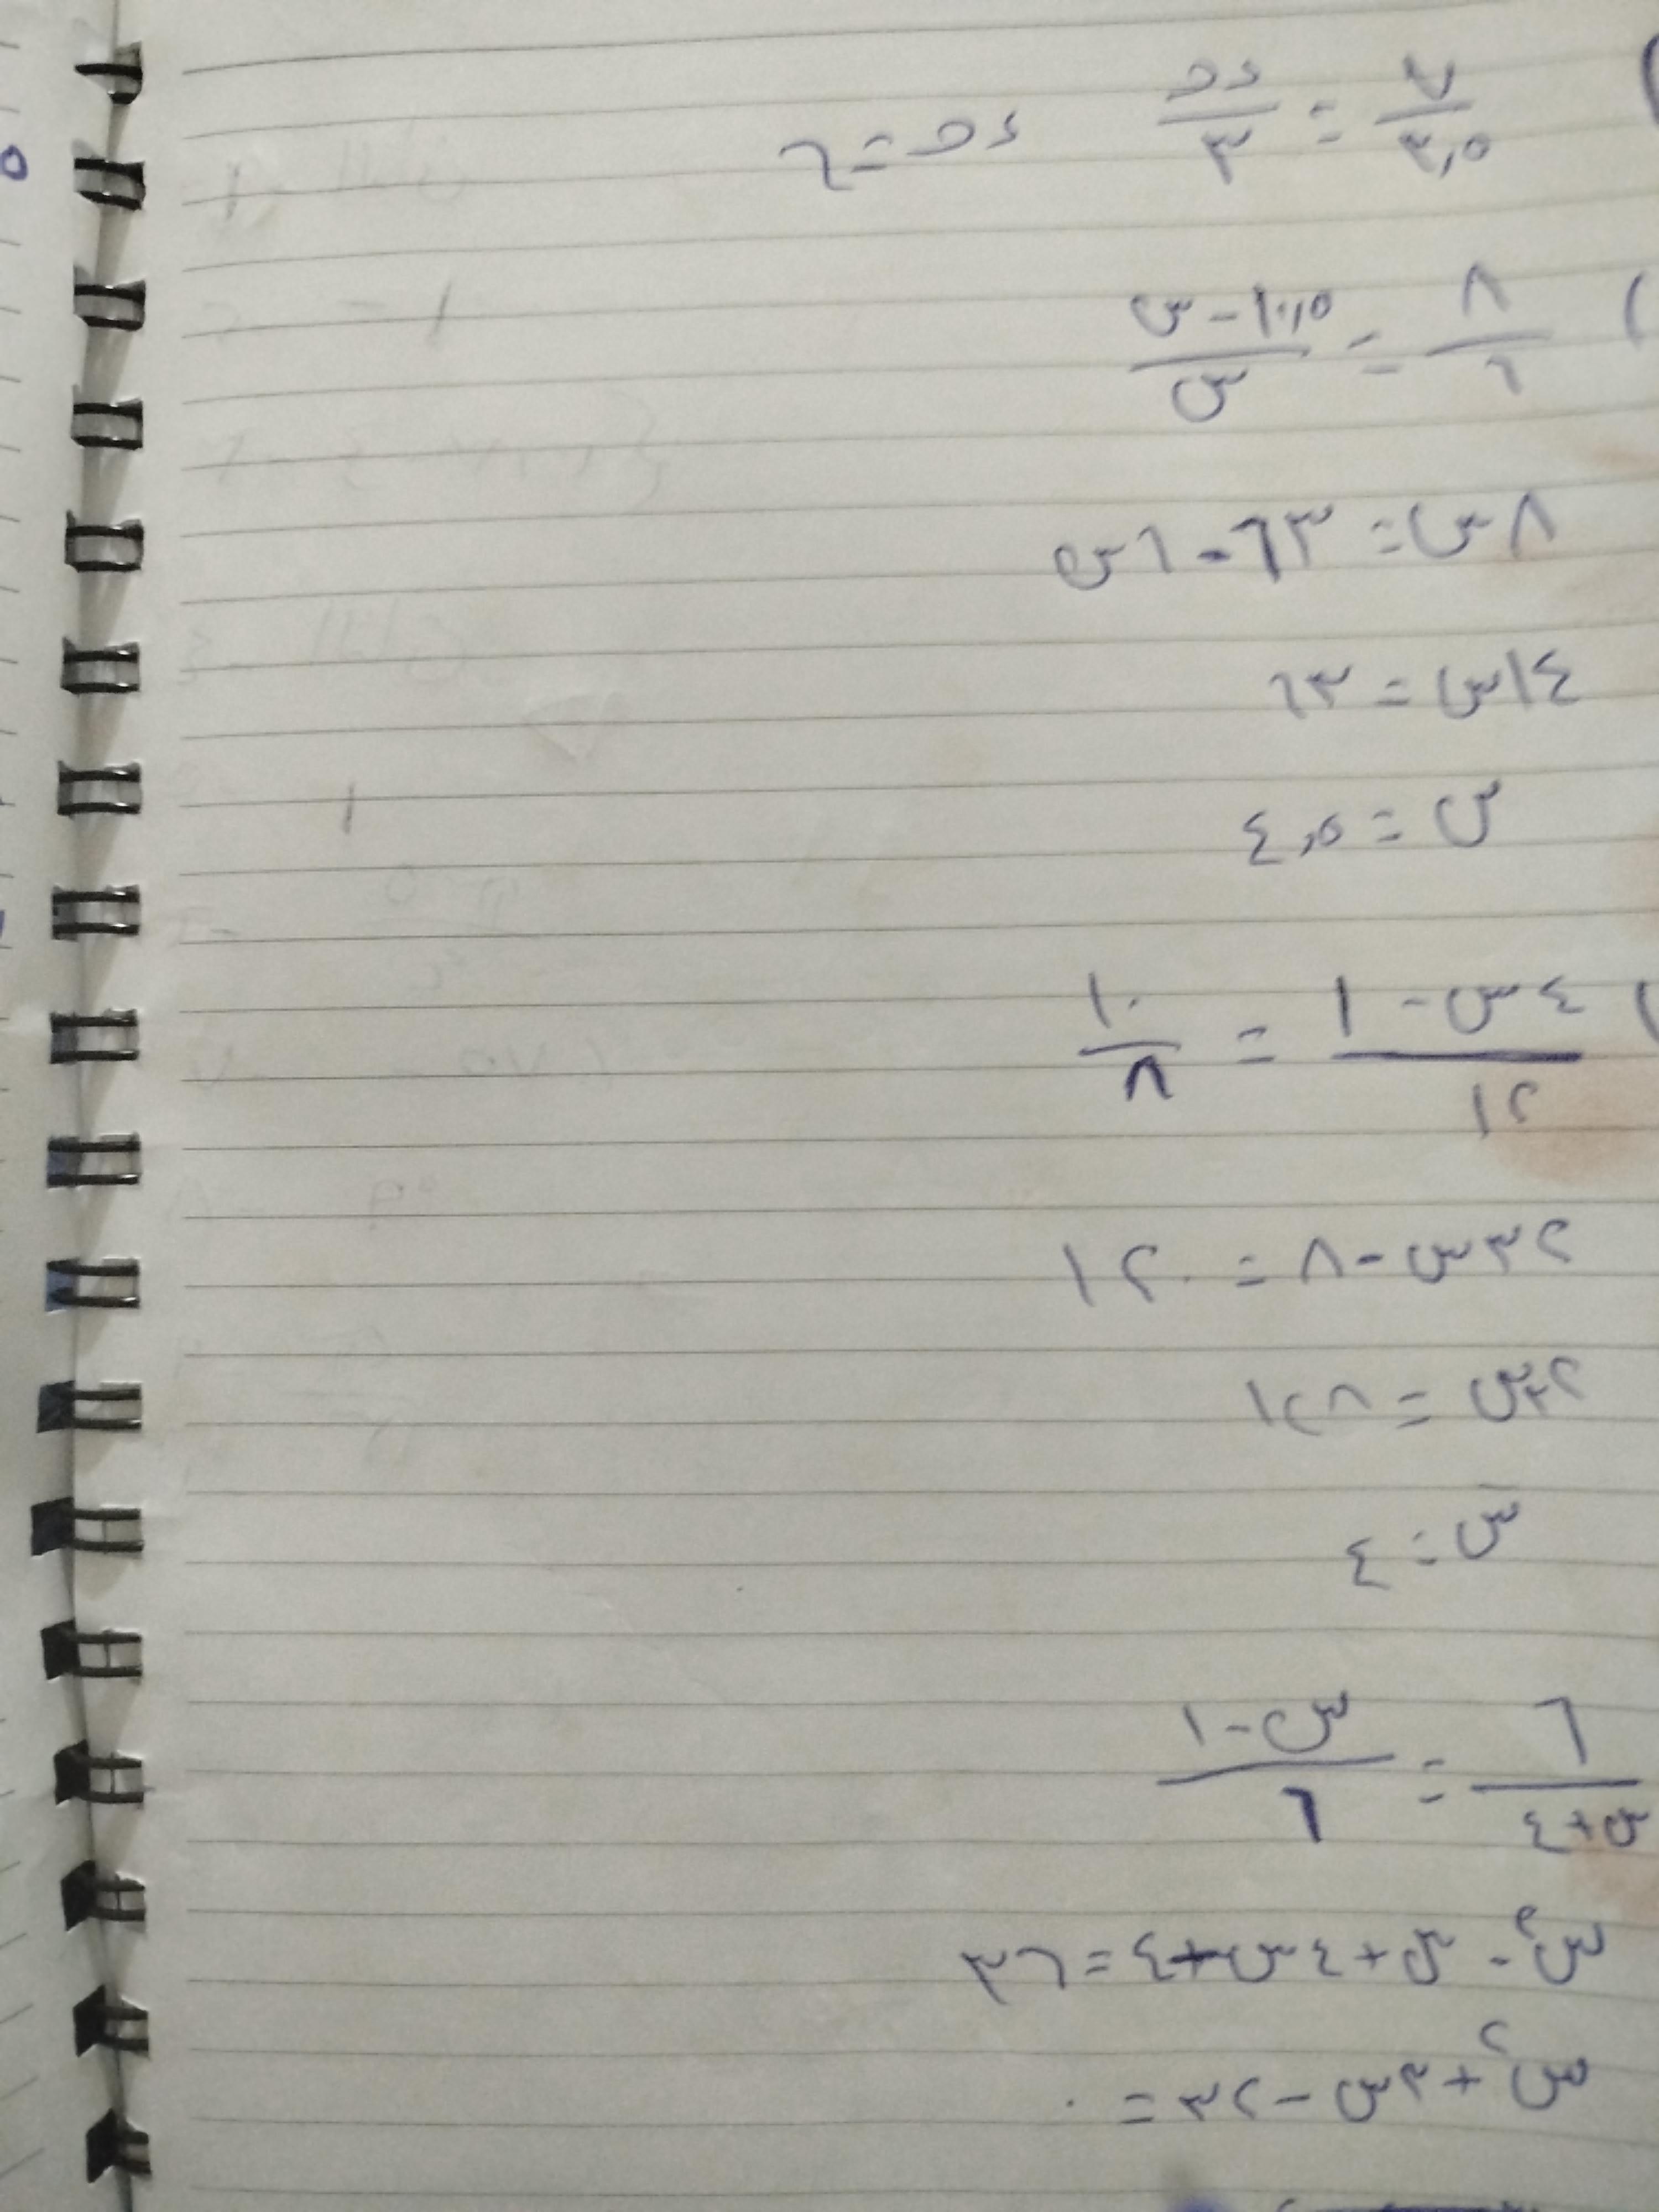 ٧/٣,٥ = د هـ/٣   د هـ = ٦
٨/٦ = (١٠,٥ - س)/س
٨س = ٦٣ - ٦س
١٤س = ٦٣
س = ٤,٥
(٤س - ١)/١٢ = ١٠/٨
٣٢س - ٨ = ١٢٠
٣٢س = ١٢٨
س = ٤
٦/(س+٤) = (س - ١)/٦
س² - س + ٤س + ٤ = ٣٦
س² + ٣س - ٣٢ = ٠